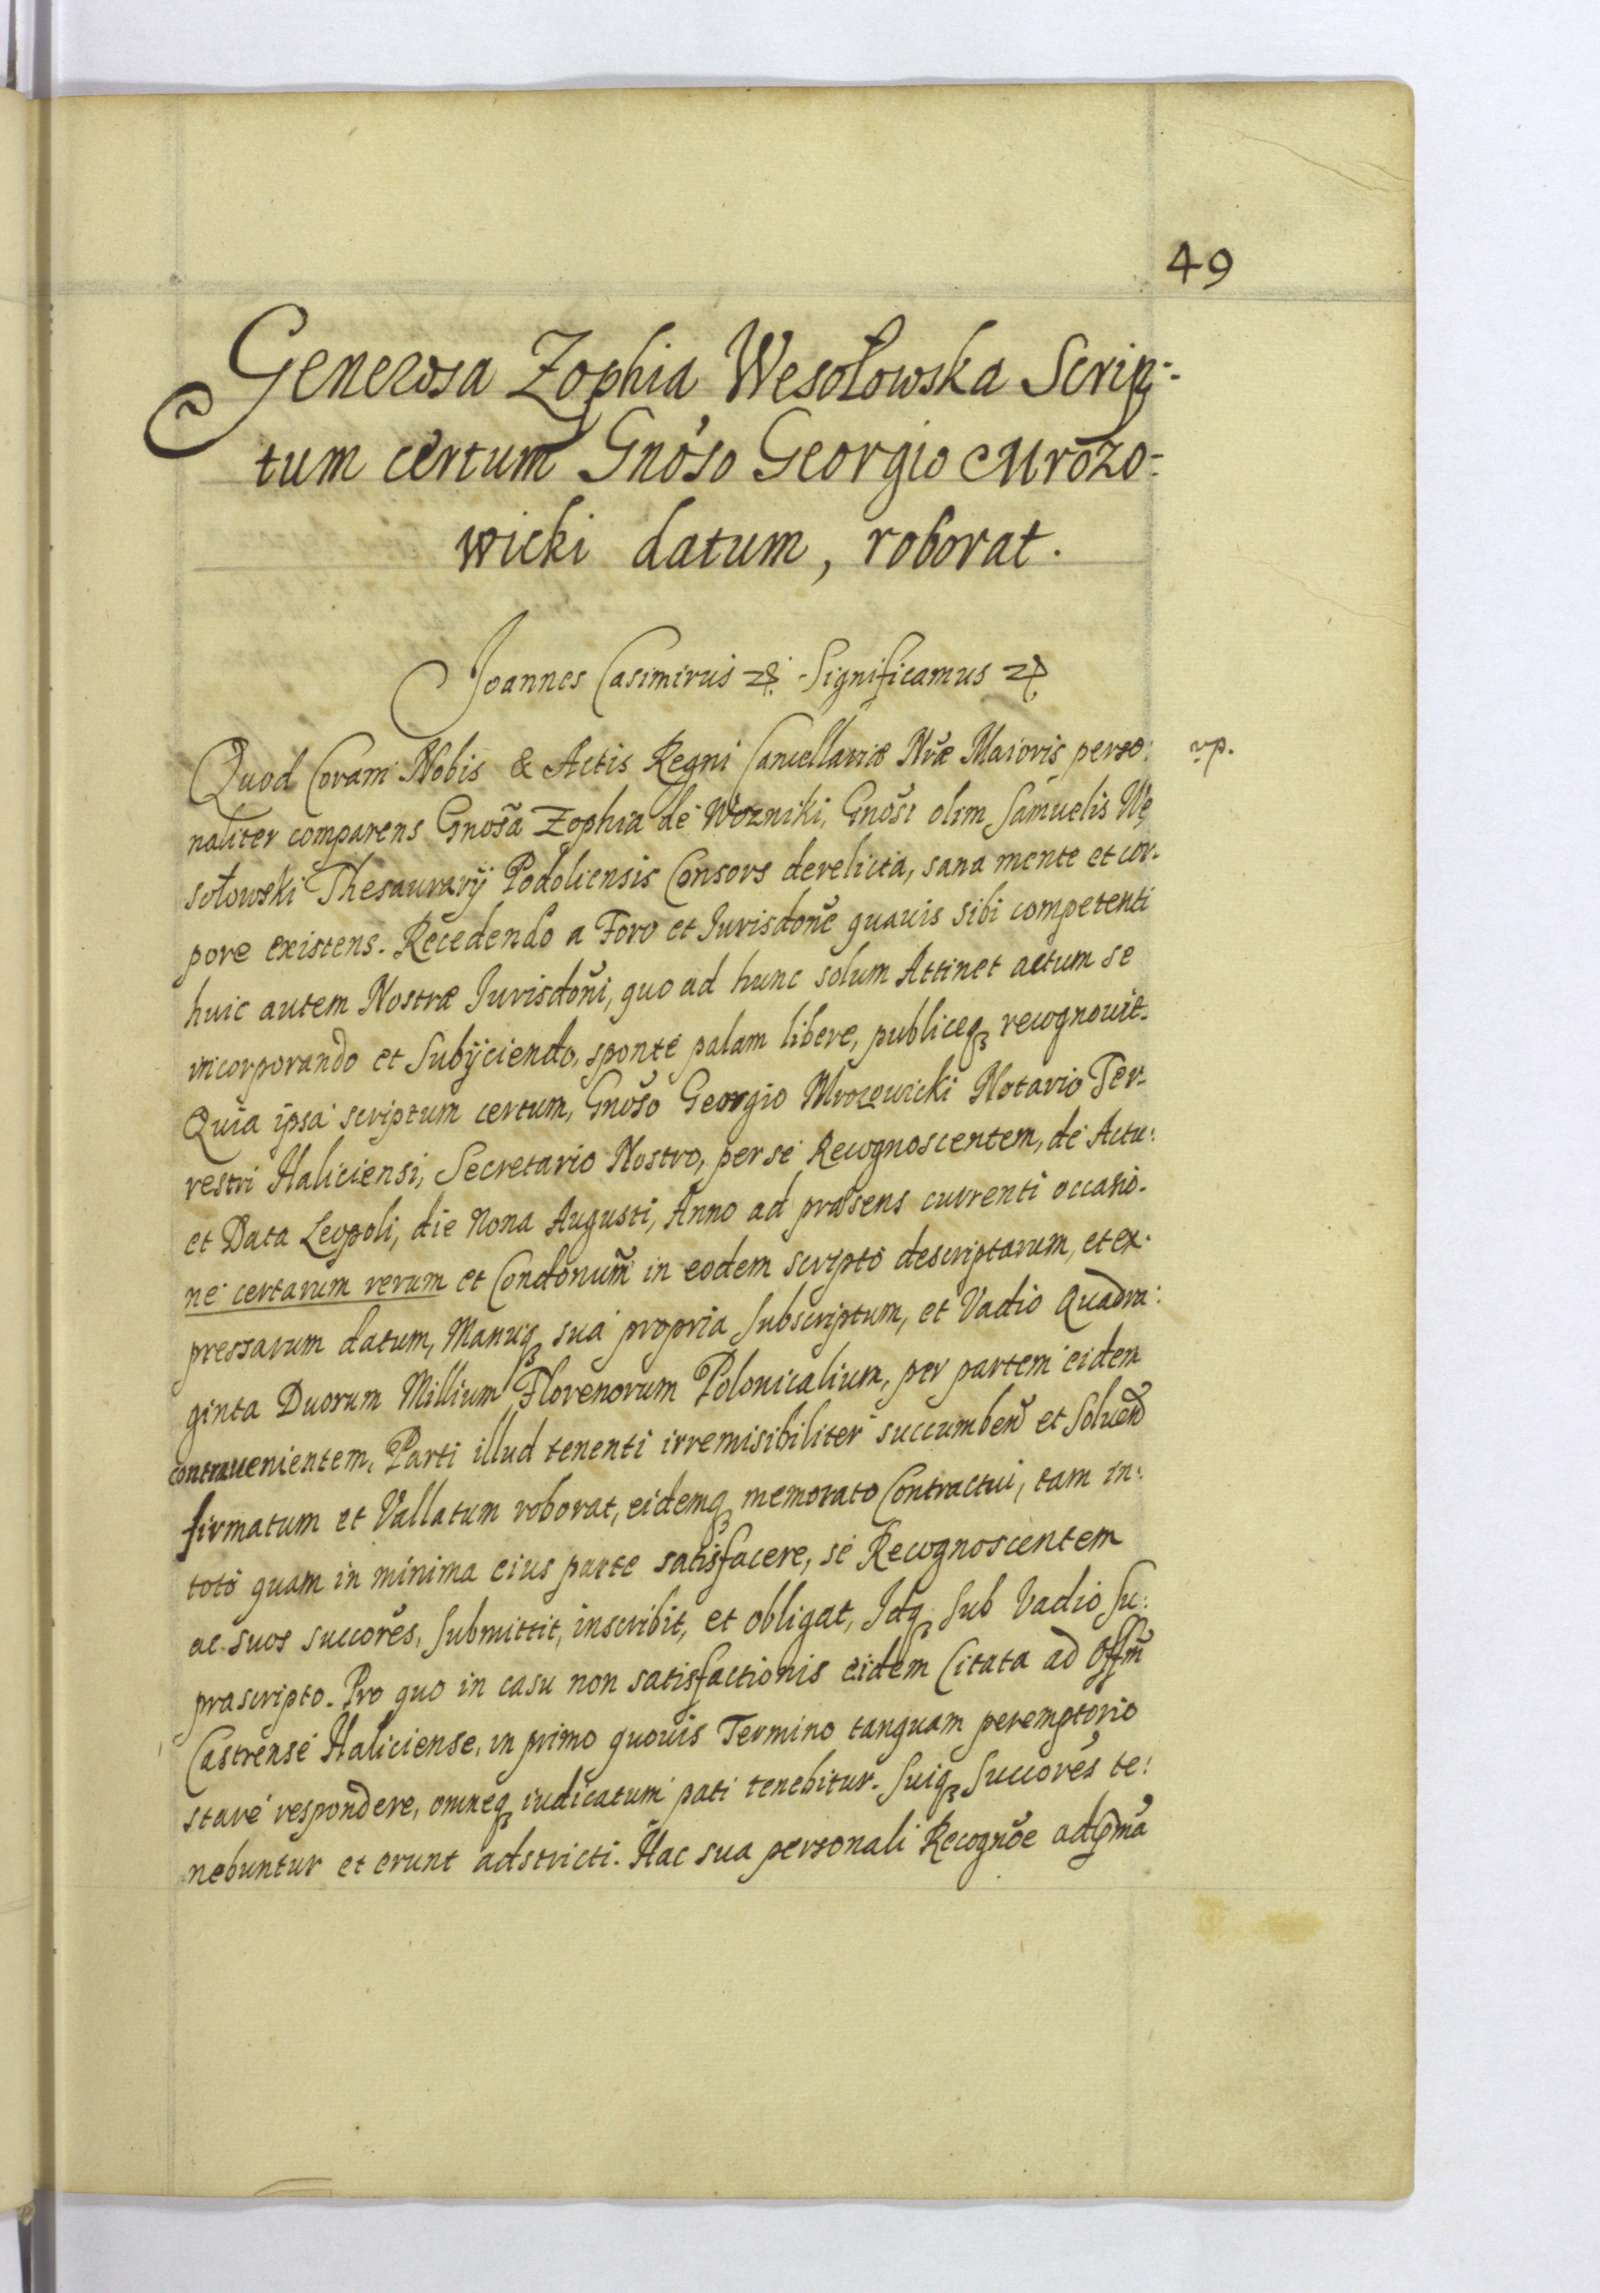 49
Generosa Zophia Wesołowska Scrip:
tum certum Gnoso Georgio Mrozo:
wicki datum, roborat.
Joannes Casimirus &. Significamus &
Quod Coram Nobis & Actis Regni Cancellariæ Nræ Maioris perso:
naliter comparens Gnosa Zophia de Wozniki, Gnosi olim Samuelis We
sołowski Thesaurarij Podoliensis Consors derelicta, sana mente et cor-
pore existens. Recedendo a Foro et Jurisdone quavis sibi competenti
huic autem Nostræ Jurisdoni, quo ad hunc solum Attinet actum se
incorporando et Subijciendo, sponte palam libere, publiceq recognouit.
Quia ipsa scriptum certum, Gnoso Georgio Mrozowicki Notario Ter-
restri Haliciensi, Secretario Nostro, per se Recognoscentem, de Actu:
et Data Leopoli, die Nona Augusti, Anno ad præsens currenti occasio-
ne certarum rerum et Condonum in eodem scripto descriptarum, et ex-
pressarum datum, Manuq sua propria Subscriptum, et Vadio Quadra:
ginta Duorum Millium Florenorum Polonicalium, per partem eidem
contrauenientem, Parti illud tenenti irremisibiliter succumben et Soluen
firmatum et Vallatum roborat, eidemq memorato Contractui, tam in:
toto quam in minima eius parte satisfacere, se Recognoscentem
ac suos succores, Submittit, inscribit, et obligat, Idq Sub Vadio Su:
prascripto. Pro quo in casu non satisfactionis eidem Citata ad Offm
Castrense Haliciense, in primo quouis Termino tanquam peremptorio
stare respondere, omneq iudicatum pati tenebitur. Suiq Succores te:
nebuntur et erunt adstricti. Hac sua personali Recognoe